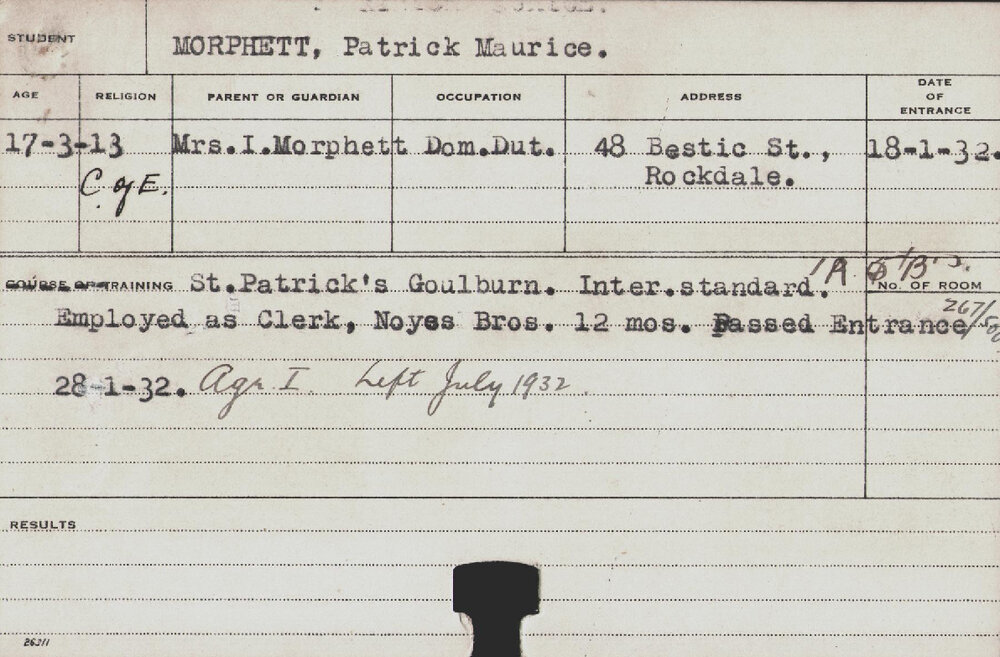 STUDENT MORPHETT, Patrick Maurice.
AGE RELIGION PARENT OR GUARDIAN OCCUPATION ADDRESS DATE OF ENTRANCE
17-3-13 Mrs.I.Morphett Dom.Dut. 48 Bestic St., 18-1-32.
C. of E. Rockdale.
COURSE OF TRAINING St.Patrick's Goulburn. Inter.standard. No. OF ROOM
Employed as Clerk, Noyes Bros. 12 mos. Passed Entrance
28-1-32. Agr I. Left July 1932.
RESULTS
26311